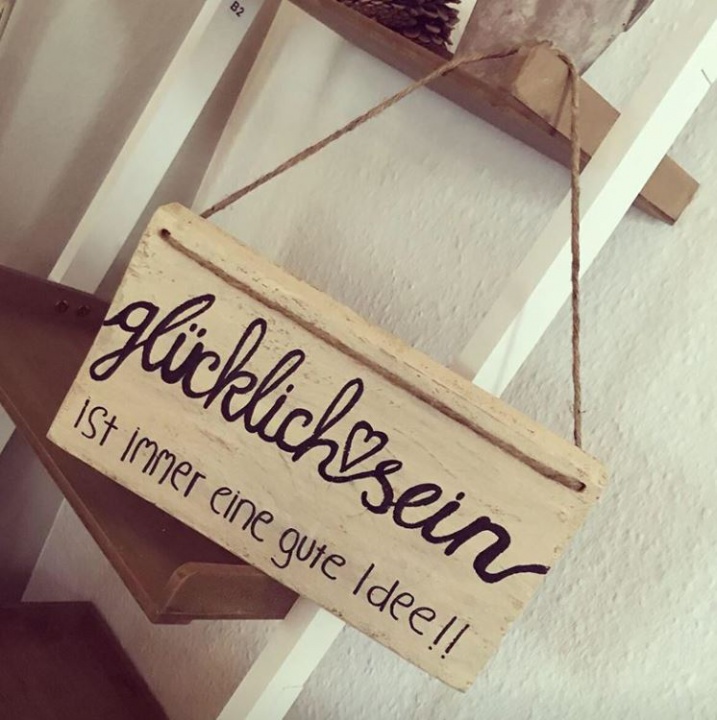 B2
glücklich♡sein
ist immer eine gute Idee!!